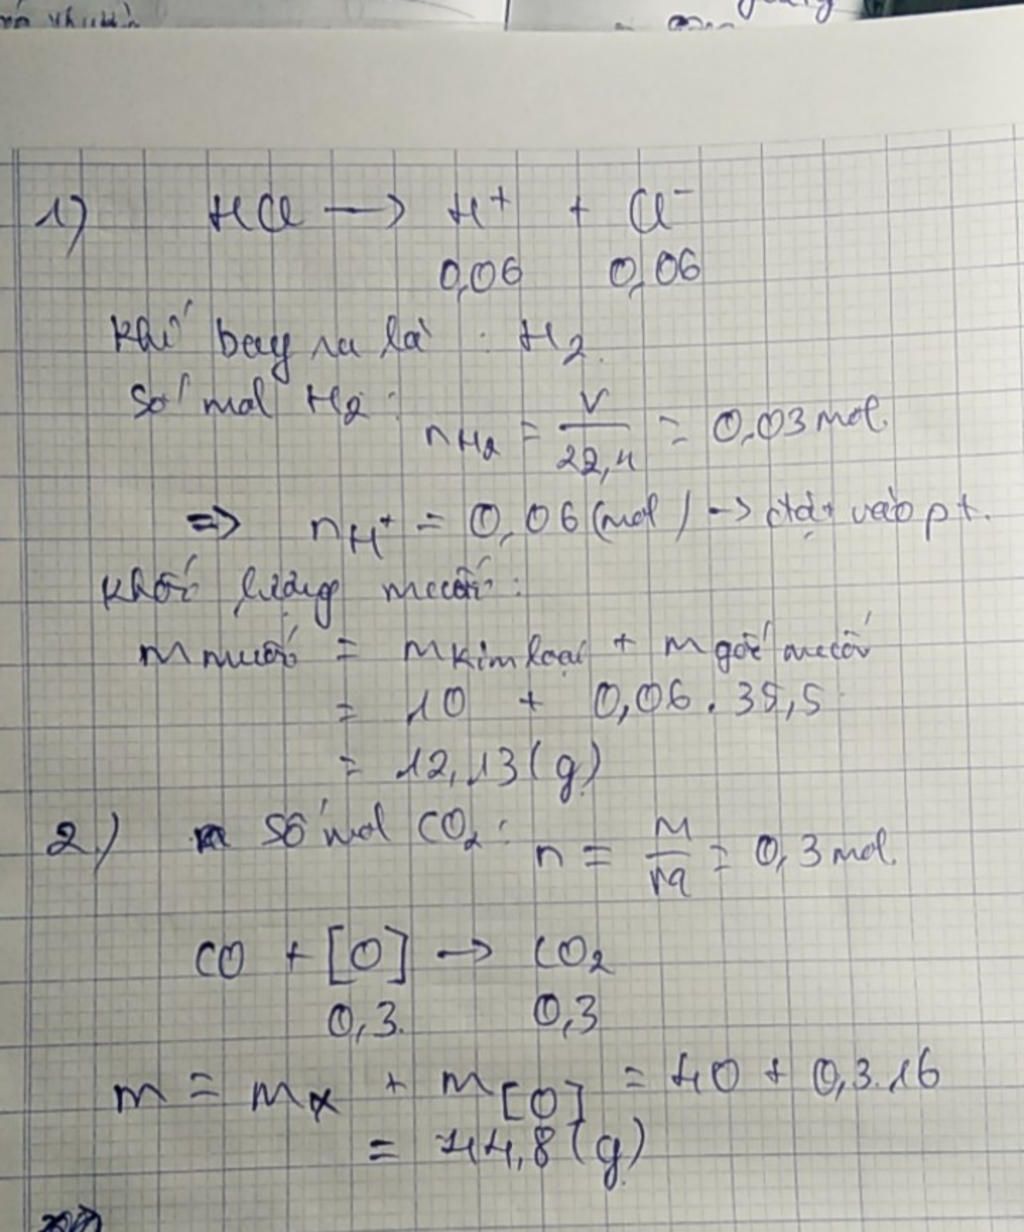 1) HCl → H⁺ + Cl⁻
0,06 0,06
Khí bay ra là : H₂.
Số mol H₂ : nH₂ = V/22,4 = 0,03 mol.
=> nH⁺ = 0,06 (mol) -> đặt vào pt.
Khối lượng muối :
m muối = m kim loại + m gốc muối
= 10 + 0,06 . 35,5
= 12,13 (g)
2.) Số mol CO₂ : n = = 0,3 mol.
CO + [O] → CO₂
0,3. 0,3
m = mX + m[O] = 40 + 0,3.16
= 44,8 (g)